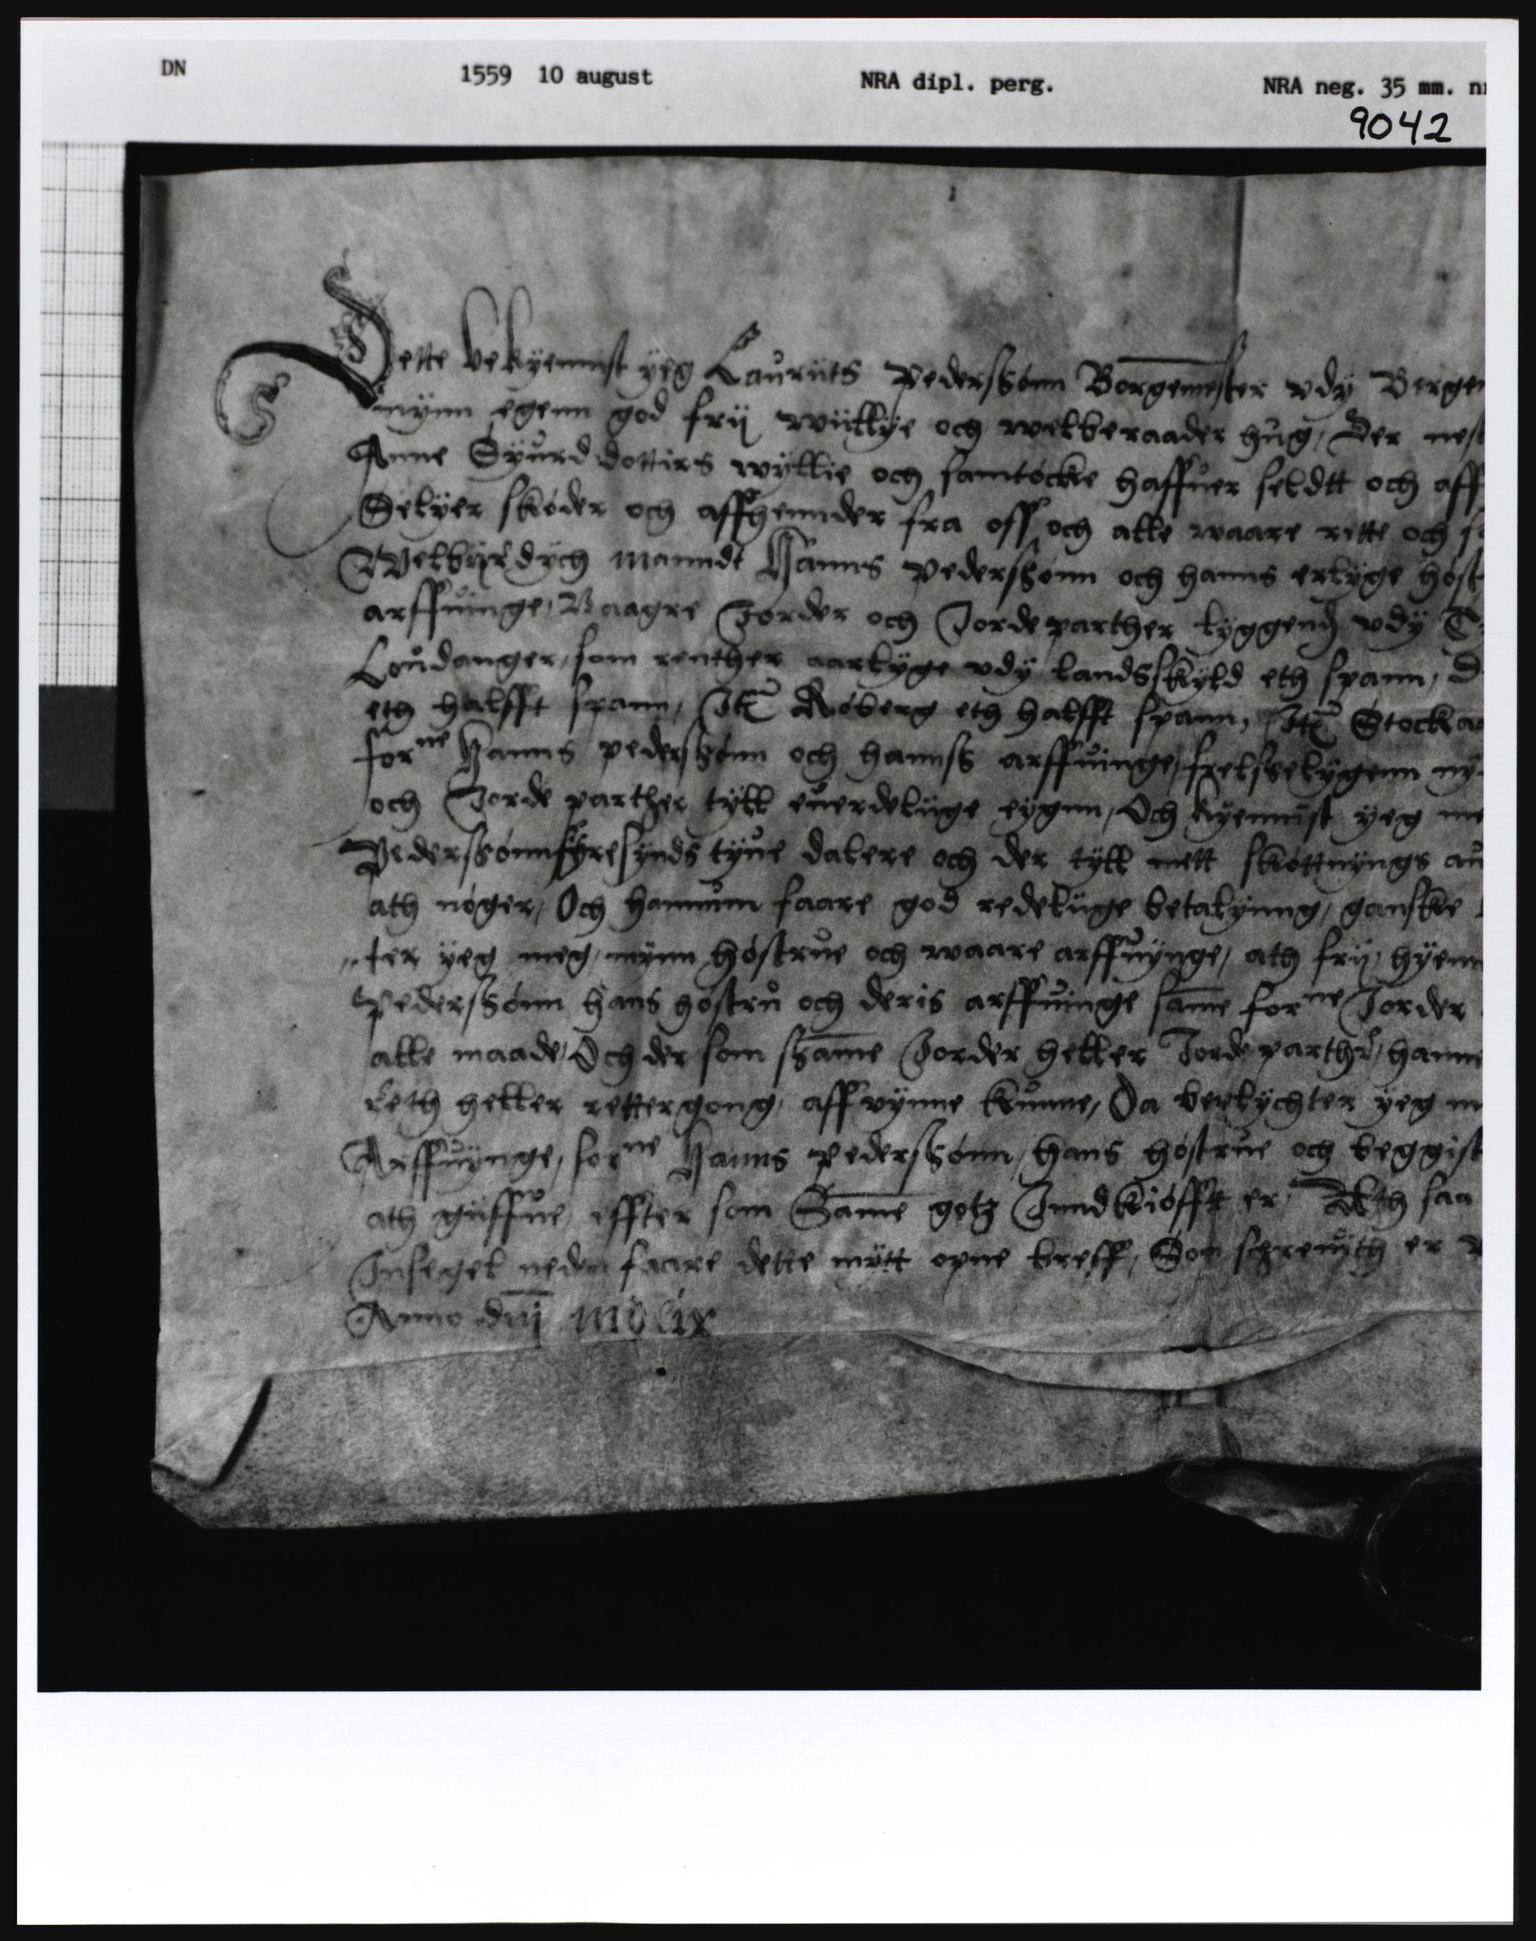 DN 1559 10 august NRA dipl. perg. NRA neg. 35 mm. nr
9042
Dette bekyennist yeg Lauriits Pederssønn Borgemester vdÿ Bergen
mÿnn egenn god frij wiillÿe och welberaader hûg, Der nest
Anne Sÿurd dottirs wÿllie och samtöcke haffuer seldtt och aff
Selÿer skøder och affhennder fra oss och alle waare rette och s
Welbÿrdÿch manndt Hanns Pederssønn och hanns erlÿge høst
arffuinge, Jorder och Jorde parther lÿggend vdÿ
Loudanger, som renther aarlÿge vdÿ landsskÿld eth spann, D
eth halfft spann, Itm Røberg eth halfft spann, Itm Stockaa
forne Hanns pederssønn och hannss arffuinge, frelsselÿgenn nÿ
och Jorde parther tÿll euerdeliige eÿgnn, Och kÿennist yeg me
Pederssønn fÿresÿnds tÿue dalere och der tÿll mett skøttnÿngs au
ath nøger, Och hannum faare god redeliige betalÿnng, ganske
ter yeg meg, mÿnn høstrue och waare arffuÿnge, ath frij, hÿem
Pederssønn hans høstru och deris arffuinge same forne Jorder
alle maade, Och der som ssame Jorder heller Jorde parther, hanne
reth heller rettergong, aff vÿnne kunne, Da beplÿchter yeg m
Arffuÿnge, forne Hanns pederssønn, hans høstrue och beggis
ath giiffue, effter som Same gotz Inndkiøfft er, Ath saa
Insegel neden faare dette mÿtt opne breff, Som schreuith er
Anno dni mdlix